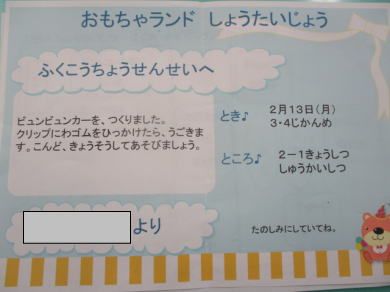 おもちゃランド しょうたいじょう
ふくこうちょうせんせいへ
ビュンビュンカーを、つくりました。
クリップにわゴムをひっかけたら、うごきま
す。こんど、きょうそうしてあそびましょう。
とき♪ 2月13日(月)
3・4じかんめ
ところ♪ 2-1きょうしつ
しゅうかいしつ
より
たのしみにしていてね。